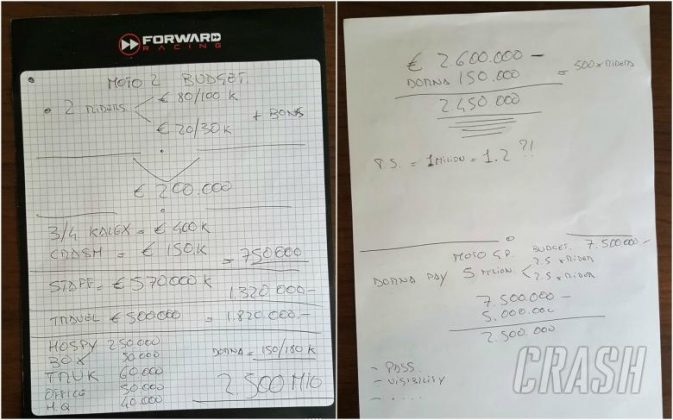 FORWARD
RACING
MOTO 2 BUDGET
• 2 RIDERS
€ 80/100 K
€ 20/30 K
+ BONUS
€ 200.000
3/4 KALEX = € 400 K
CRASH = € 150.K = 750000
STAFF = € 570000 K
1.320.000-
TRAVEL € 500000 = 1.820.000.-
HOSPY 250000
BOX 30000
TRUK 60000
OFFICE 50000
H.Q 40000
DORNA = 150/180 K
2.500 MIO
€ 2.600.000-
DORNA 150.000
= 500 x RIDERS
2.450 000
P.S. = 1 MILION = 1.2 ?!
MOTO G.P. BUDGET 7.500000-
DORNA PAY 5 MILION
2.5 x RIDER
2.5 x RIDER
7.500.000-
5.000.000
2.500.000
- PASS.
- VISIBILITY
- .....
CRASH